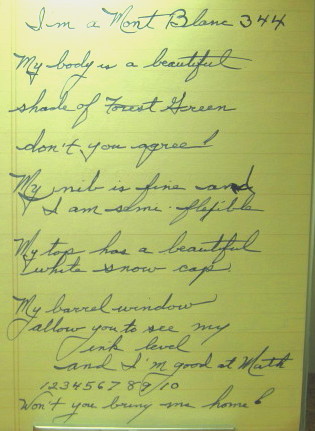 I'm a Mont Blanc 344
My body is a beautiful
shade of Forest Green
don't you agree!
My nib is fine and
I am semi-flexible
My top has a beautiful
white snow cap
My barrel window
allow you to see my
ink level
and I'm good at Math
12345678910
Won't you bring me home!